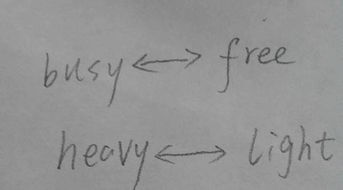 busy ↔ free
heavy ↔ light